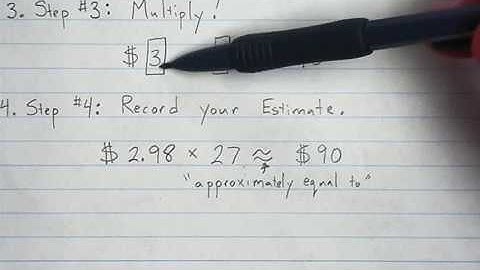 3. Step #3: Multiply!
$ 3
4. Step #4: Record your Estimate.
$ 2.98 × 27 ≈ $ 90
"approximately equal to"